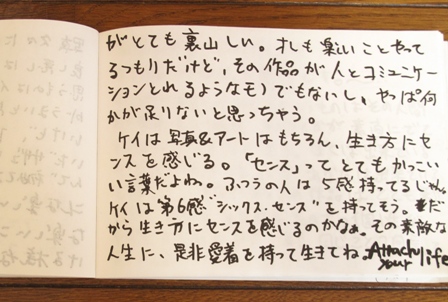 がとても裏山しい。オレも楽しいことやって
るつもりだけど、その作品が人とコミュニケー
ションとれるようなモノでもないし、やっぱ何
かが足りないと思っちゃう。
ケイは写真&アートはもちろん、生き方にセ
ンスを感じる。「センス」ってとてもかっこい
い言葉だよね。ふつうの人は5感持ってるじゃん
ケイは第6感"シックス・センス"を持ってそう。だ
から生き方にセンスを感じるのかなぁ。その素敵な
人生に、是非愛着を持って生きてね。Attach
your life